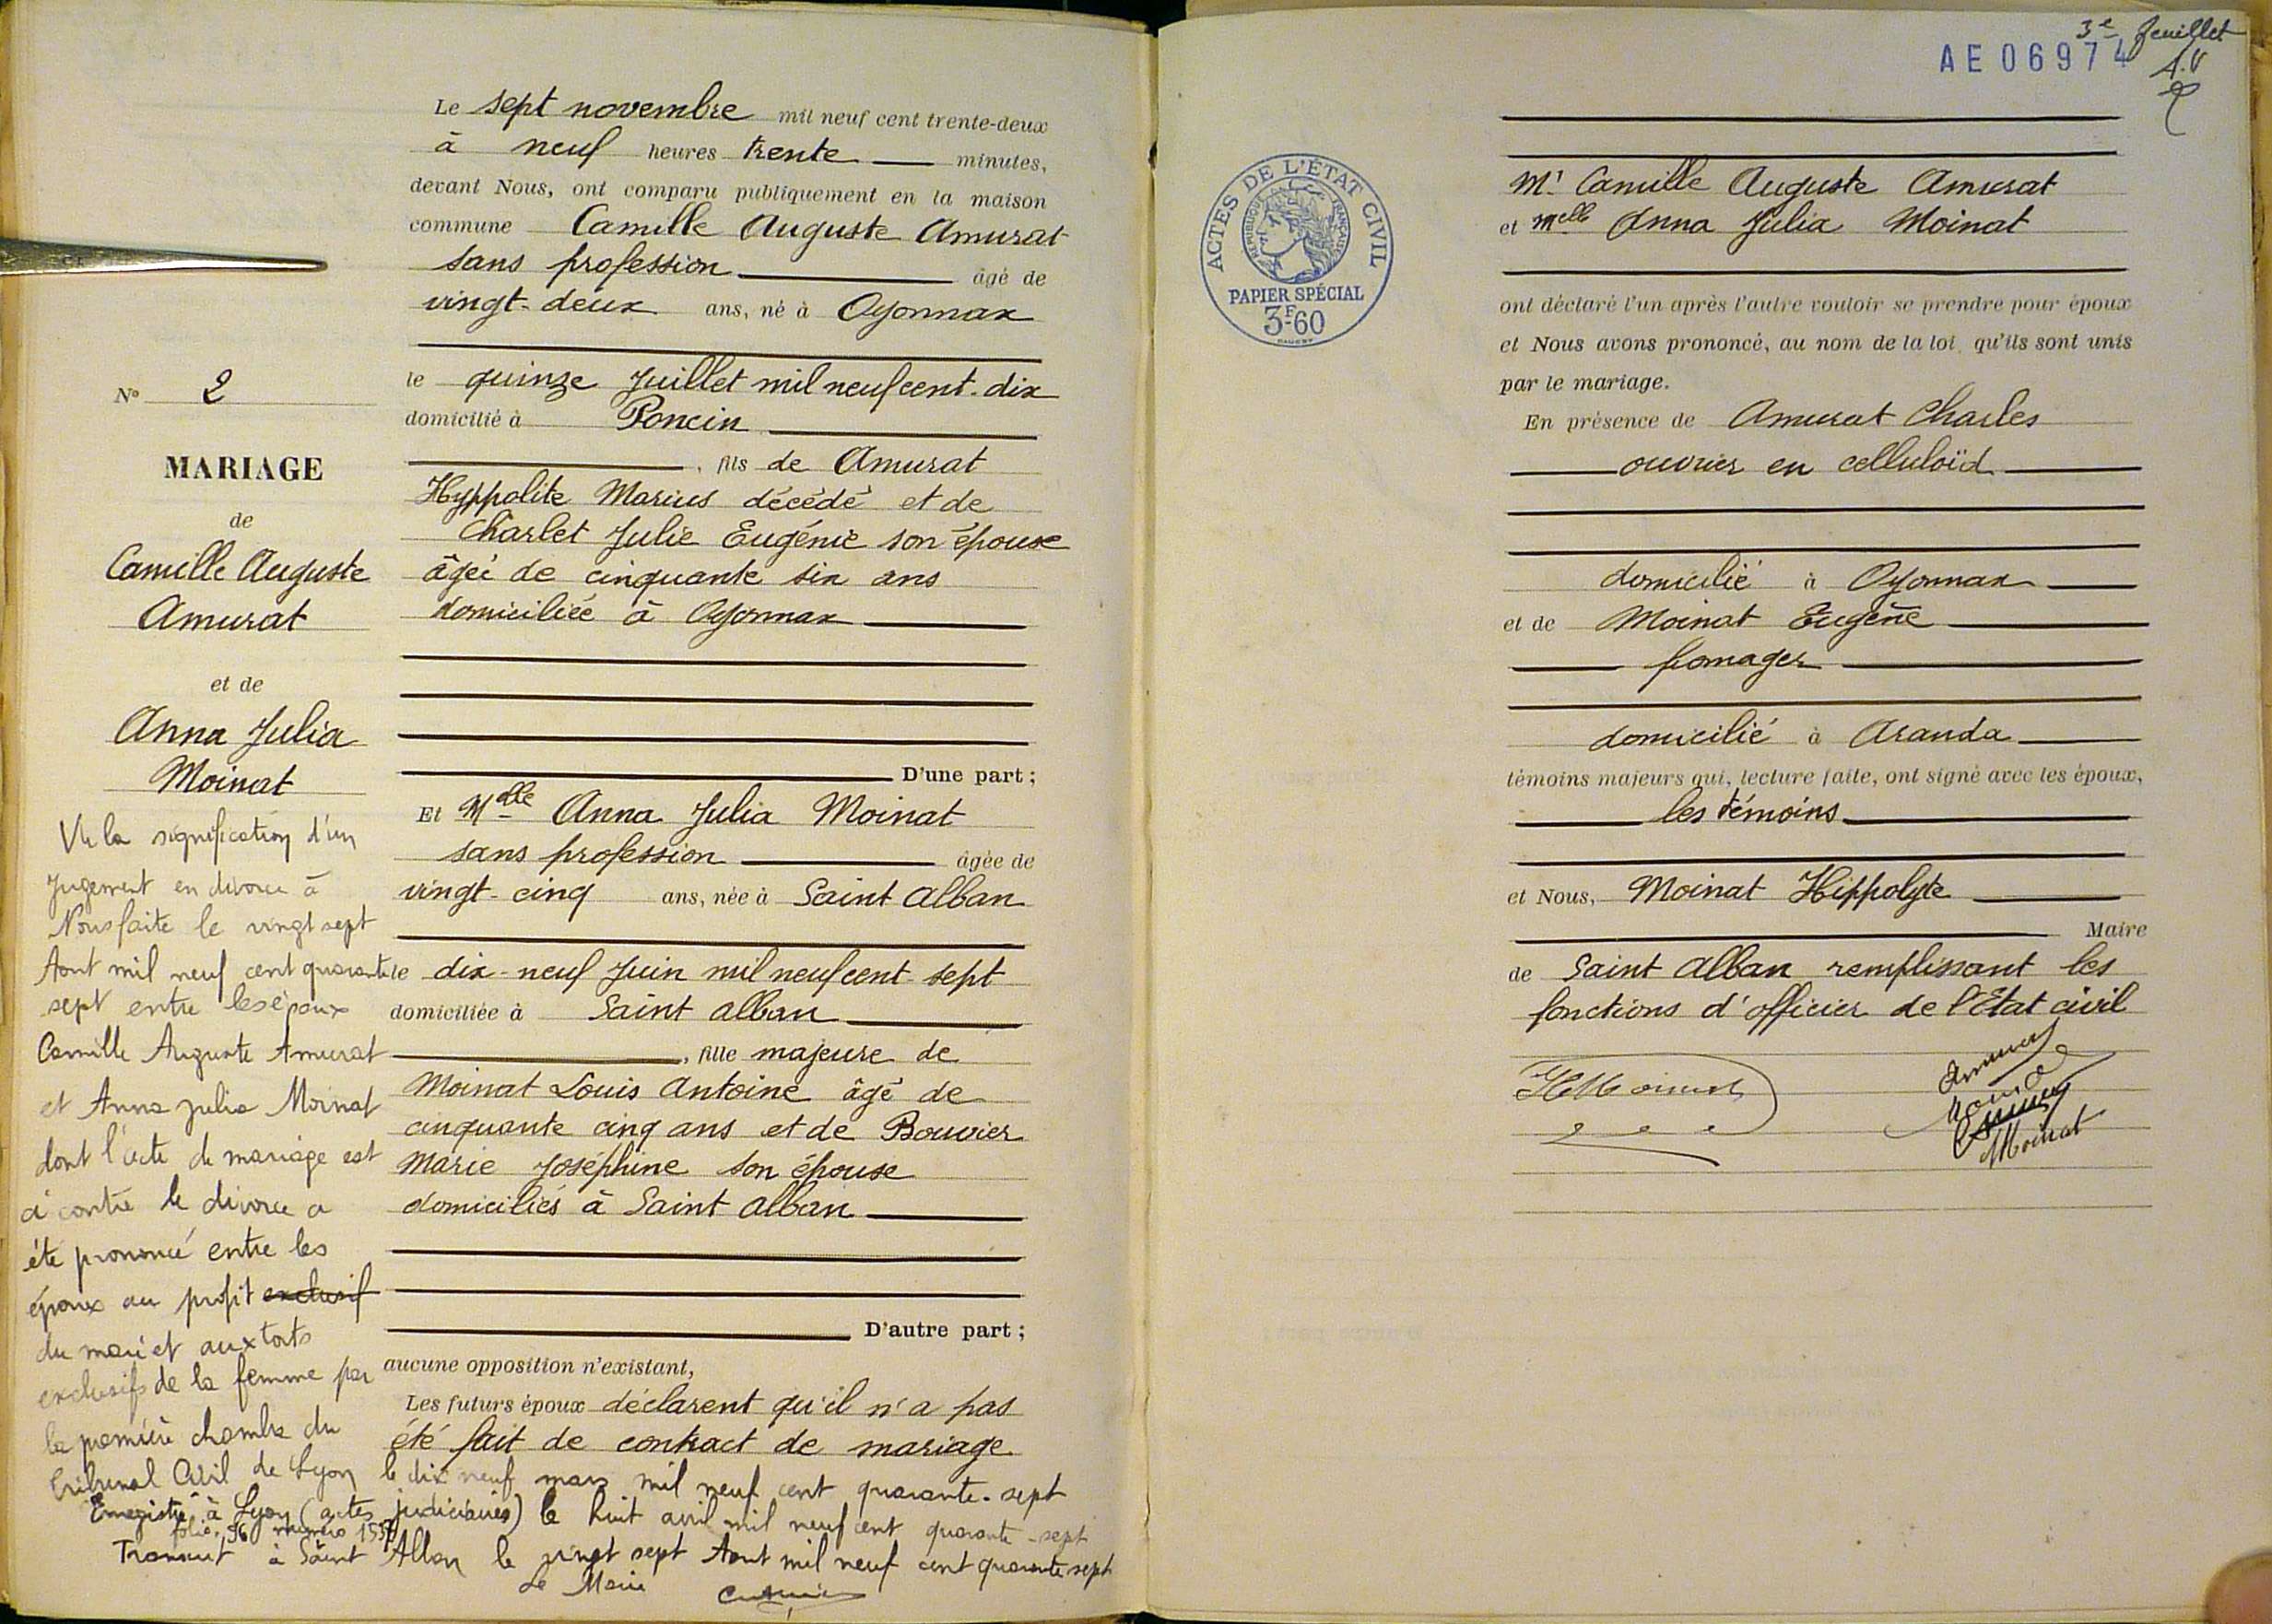 Le sept novembre mil neuf cent trente-deux
à neuf heures trente minutes,
devant Nous, ont comparu publiquement en la maison
commune Camille Auguste Amurat
sans profession âgé de
vingt-deux ans, né à Oyonnax
le quinze Juillet mil neuf cent-dix
domicilié à Poncin
, fils de Amurat
Hyppolite Marius décédé et de
Charlet Julie Eugénie son épouse
âgée de cinquante six ans
domiciliée à Oyonnax
D'une part ;
Et Melle Anna Julia Moinat
sans profession âgée de
vingt-cinq ans, née à Saint Alban
le dix-neuf Juin mil neuf cent sept
domiciliée à Saint Alban
, fille majeure de
Moinat Louis Antoine âgé de
cinquante cinq ans et de Bouvier
Marie Joséphine son épouse
domiciliés à Saint Alban
D'autre part ;
aucune opposition n'existant,
Les futurs époux déclarent qu'il n'a pas
été fait de contract de mariage
No 2
MARIAGE
de
Camille Auguste
Amurat
et de
Anna Julia
Moinat
Vu la signification d'un
Jugement en divorce à
Nous faite le vingt sept
Aout mil neuf cent quarante
sept entre les époux
Camille Auguste Amurat
et Anna Julia Moinat
dont l'acte de mariage est
ci contre le divorce a
été prononcé entre les
époux au profit exclusif
du mari et aux torts
exclusifs de la femme par
la première chambre du
Tribunal Civil de Lyon le dix neuf mars mil neuf cent quarante-sept
Enregistré à Lyon (actes judiciaires) le huit avril mil neuf cent quarante-sept
folio 96 numéro
Transcrit à Saint Alban le vingt sept Aout mil neuf cent quarante sept
Le Maire
3e feuillet
AE 06974
A.V
ACTES DE L'ÉTAT CIVIL
RÉPUBLIQUE FRANÇAISE
PAPIER SPÉCIAL
3F60
Mr Camille Auguste Amurat
et Melle Anna Julia Moinat
ont déclaré l'un après l'autre vouloir se prendre pour époux
et Nous avons prononcé, au nom de la loi, qu'ils sont unis
par le mariage.
En présence de Amurat Charles
ouvrier en celluloïd
domicilié à Oyonnax
et de Moinat Eugène
fromager
domicilié à Aranda
témoins majeurs qui, lecture faite, ont signé avec les époux,
les témoins
et Nous, Moinat Hippolyte
Maire
de Saint Alban remplissant les
fonctions d'officier de l'Etat civil
H Moinat
Amurat
Moinat